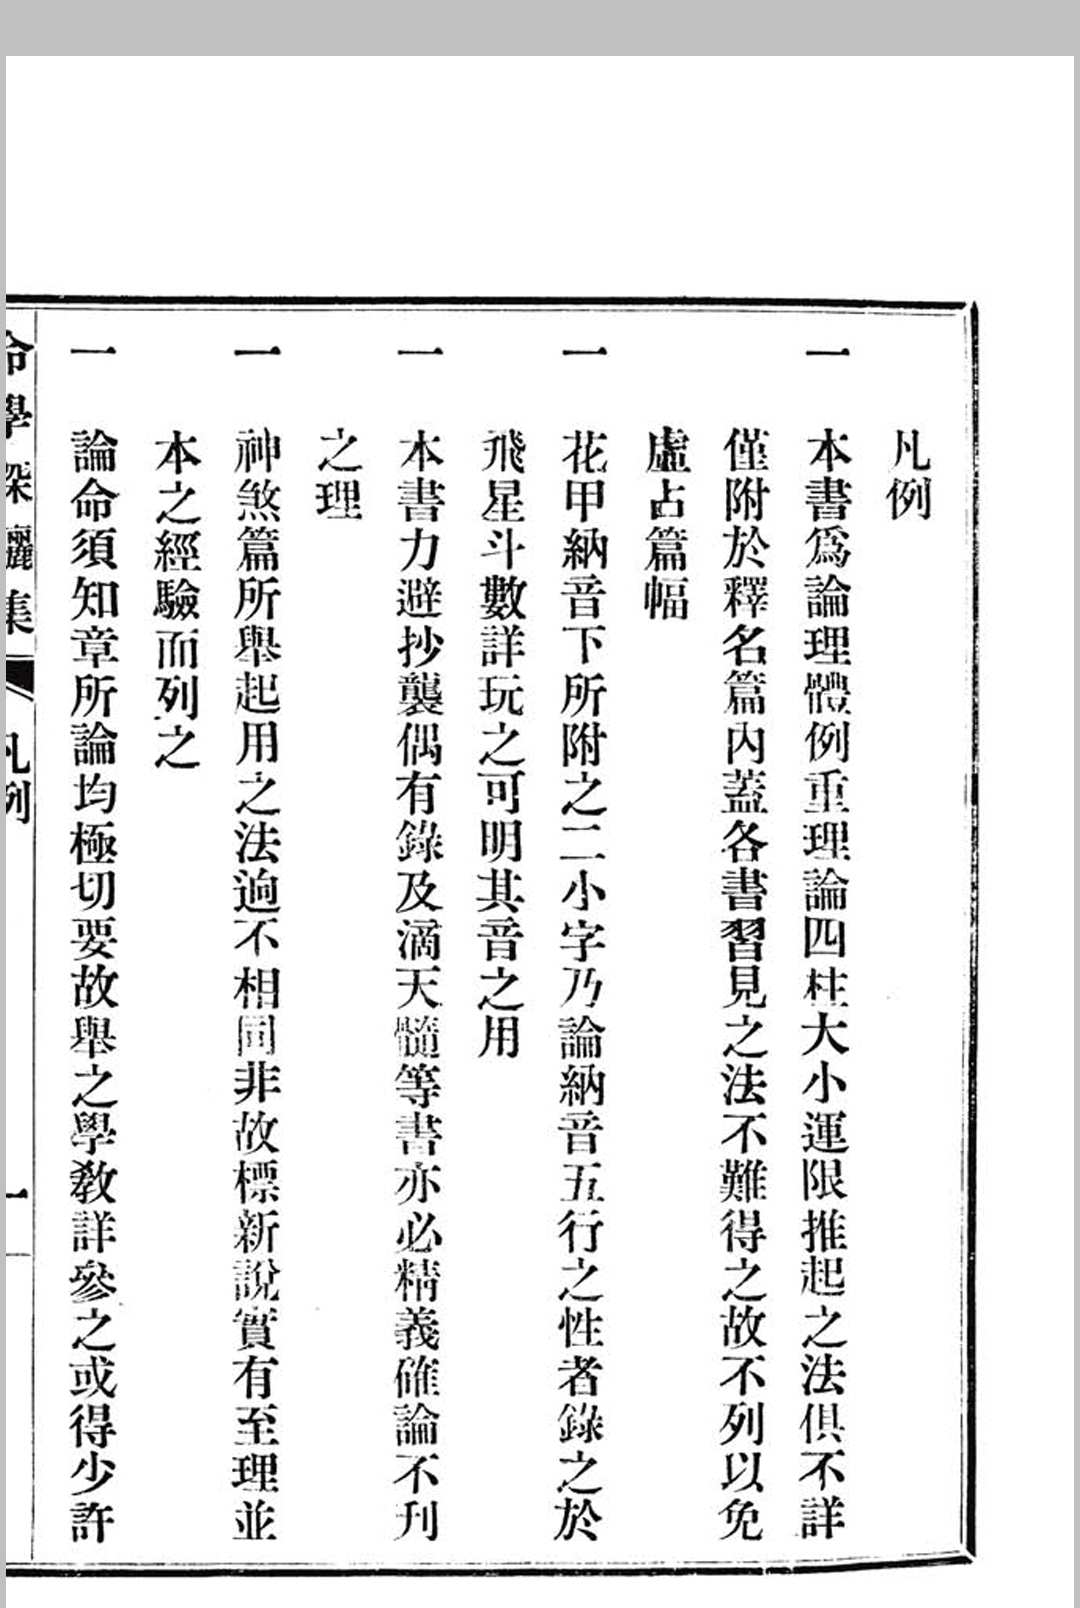 凡例
一 本書爲論理體例重理論四柱大小運限推起之法俱不詳
僅附於釋名篇內蓋各書習見之法不難得之故不列以免
虛占篇幅
一 花甲納音下所附之二小字乃論納音五行之性者錄之於
飛星斗數詳玩之可明其音之用
一 本書力避抄襲偶有錄及滴天髓等書亦必精義確論不刊
之理
一 神煞篇所舉起用之法逈不相同非故標新說實有至理並
本之經驗而列之
一 論命須知章所論均極切要故舉之學敎詳參之或得少許
命學探驪集 凡例 一